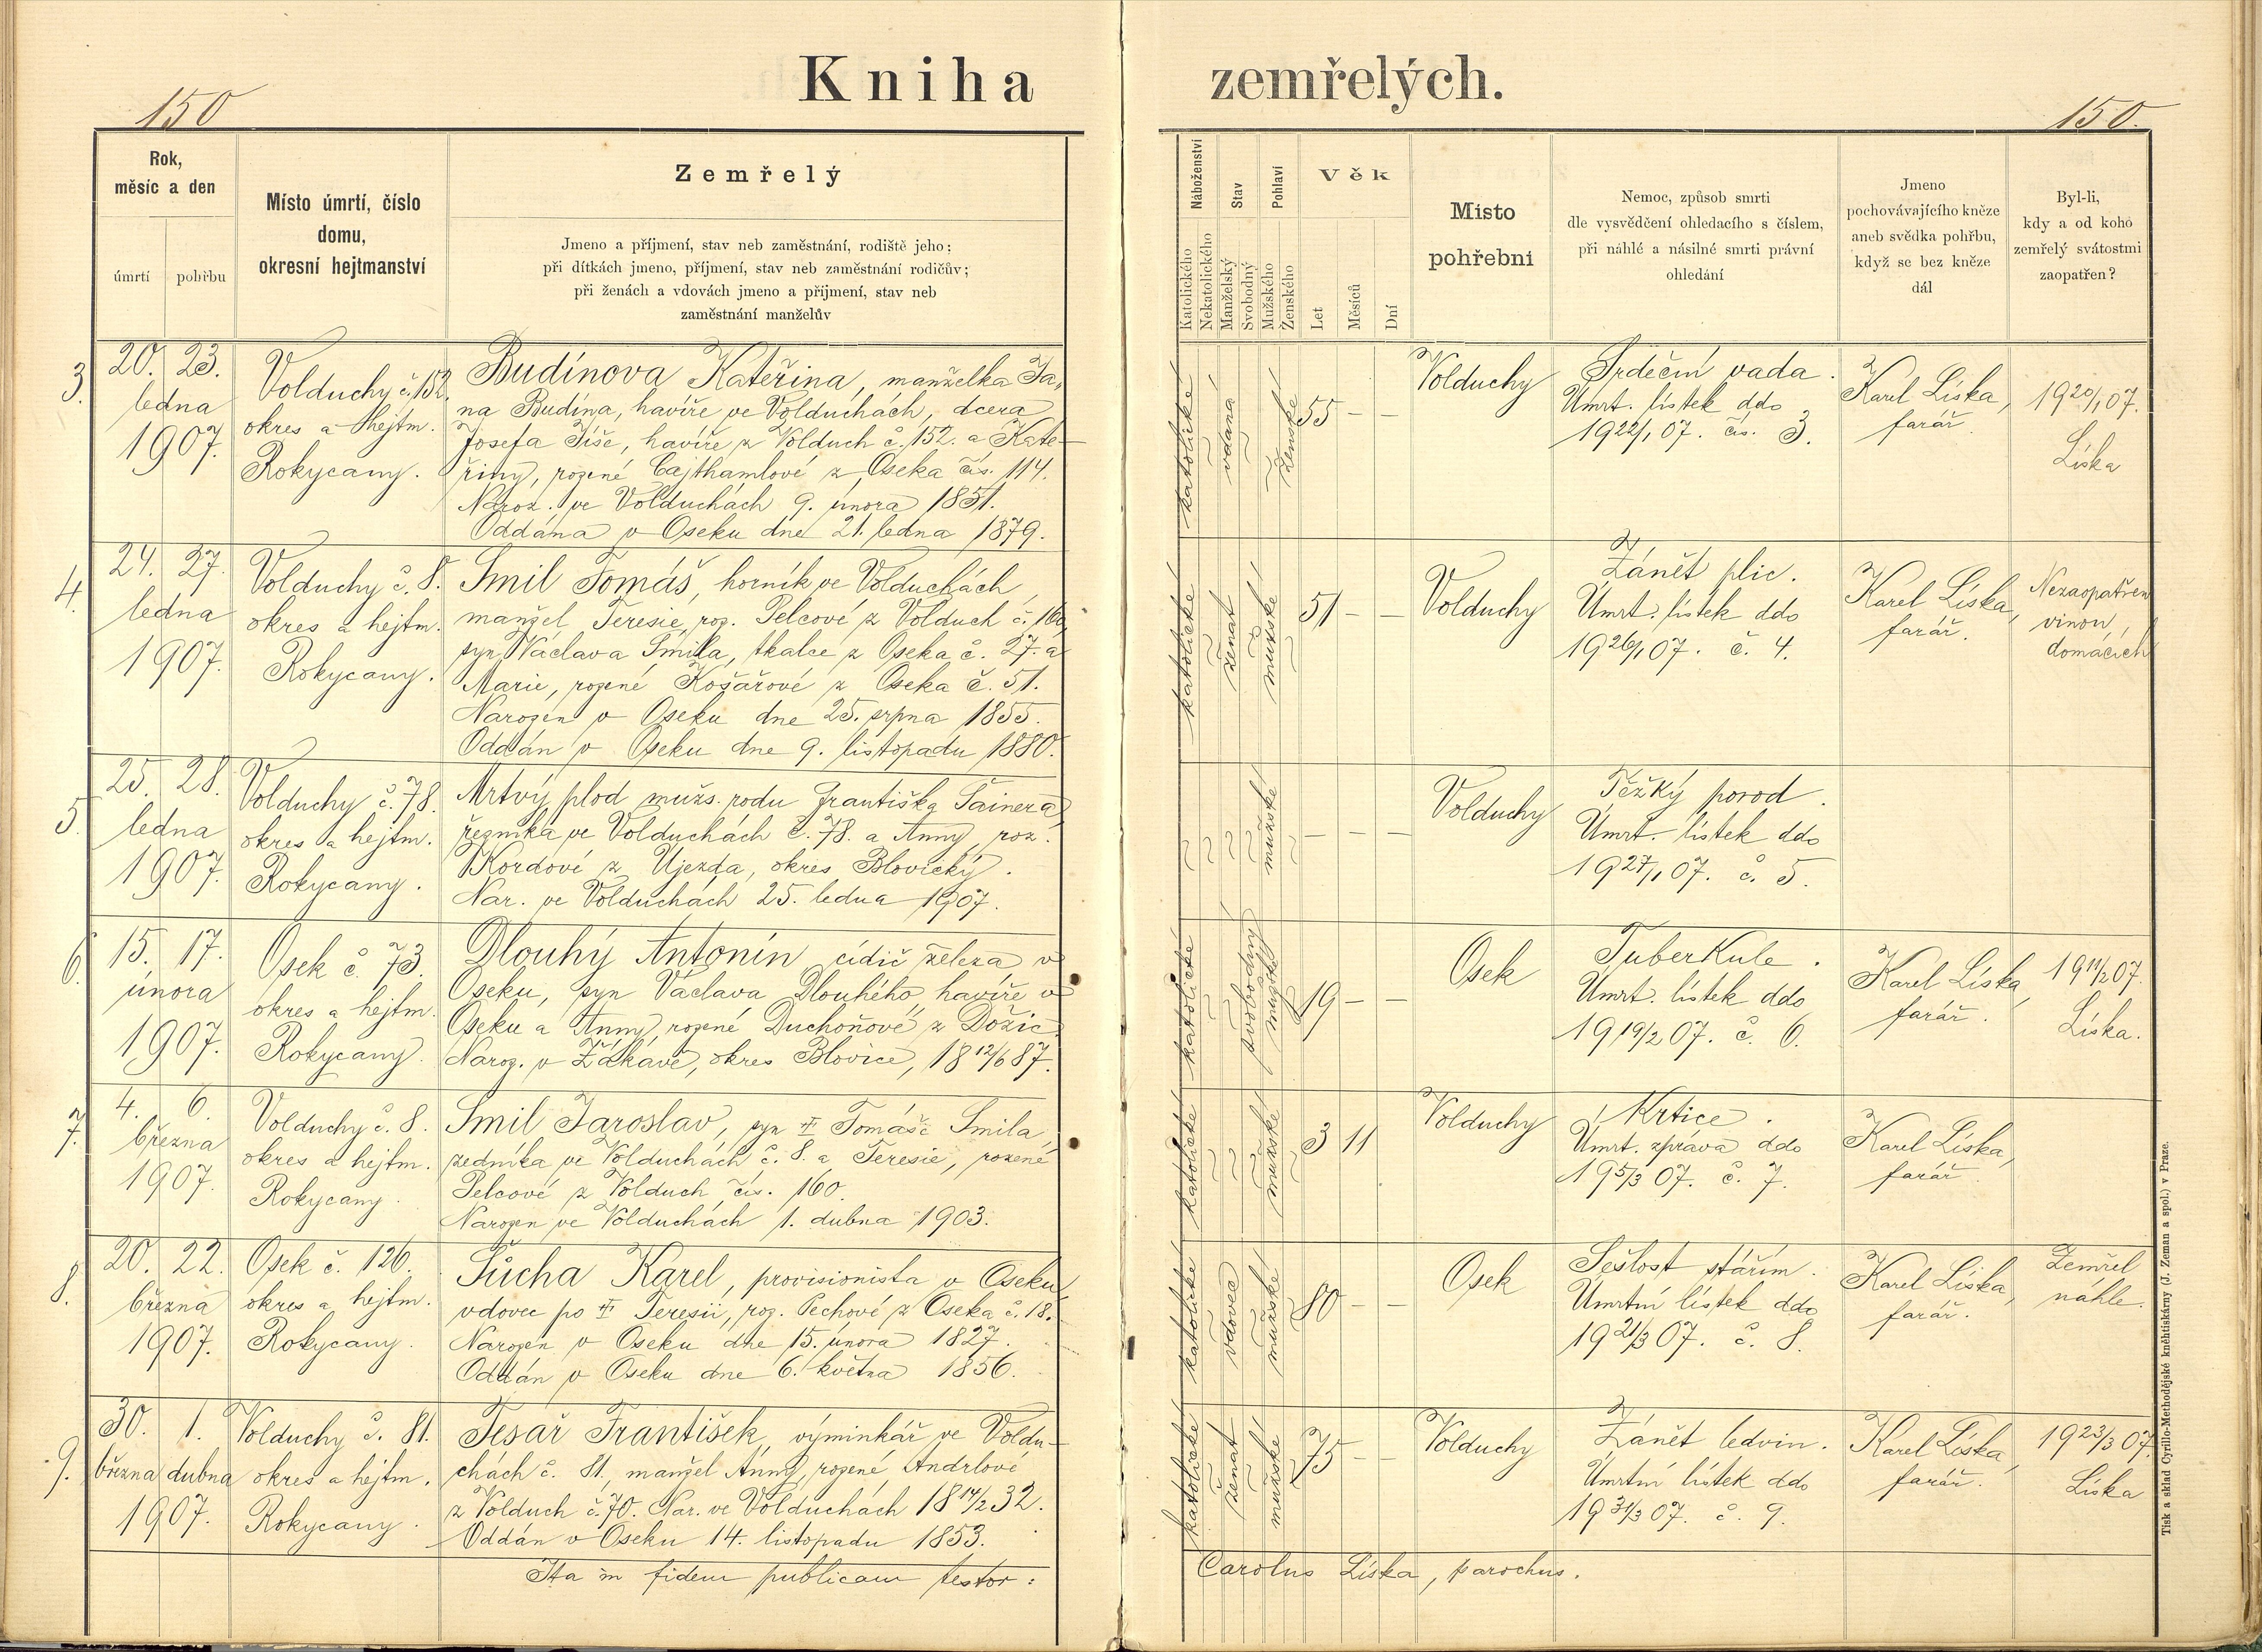 Kniha zemřelých.
150
150.
Rok,
měsíc a den
úmrtí
pohřbu
Místo úmrtí, číslo
domu,
okresní hejtmanství
Zemřelý
Jmeno a příjmení, stav neb zaměstnání, rodiště jeho;
při dítkách jmeno, příjmení, stav neb zaměstnání rodičův;
při ženách a vdovách jmeno a příjmení, stav neb
zaměstnání manželův
Náboženství
Katolického
Nekatolického
Stav
Manželský
Svobodný
Pohlaví
Mužského
Ženského
Věk
Let
Měsíců
Dní
Místo
pohřební
Nemoc, způsob smrti
dle vysvědčení ohledacího s číslem,
při náhlé a násilné smrti právní
ohledání
Jmeno
pochovávajícího kněze
aneb svědka pohřbu,
když se bez kněze
dál
Byl-li,
kdy a od koho
zemřelý svátostmi
zaopatřen?
3.
20. 23.
ledna
1907.
Volduchy č. 152.
okres a hejtm.
Rokycany.
Budínova Kateřina, manželka Ja-
na Budína, havíře ve Volduchách, dcera
Josefa Tíše, havíře z Volduch č. 152. a Kate-
řiny, rozené Cajthamlové z Oseka čís. 114.
Naroz. ve Volduchách 9. února 1851.
Oddána v Oseku dne 21. ledna 1879.
katolické
vdana
ženské
55 – –
Volduchy
Srdeční vada.
Úmrt. lístek ddo
19 22/1 07. čís. 3.
Karel Líska,
farář
19 20/1 07.
Líska
4.
24. 27.
ledna
1907.
Volduchy č. 8.
okres a hejtm.
Rokycany.
Smil Tomáš, horník ve Volduchách,
manžel Teresie, roz. Pelcové z Volduch č. 160,
syn Václava Smila, tkalce z Oseka č. 27. a
Marie, rozené Košařové z Oseka č. 51.
Narozen v Oseku dne 25. srpna 1855.
Oddán v Oseku dne 9. listopadu 1880.
katolické
ženat
mužské
51 – –
Volduchy
Zánět plic.
Úmrt. lístek ddo
19 26/1 07. č. 4.
Karel Líska,
farář.
Nezaopatřen
vinou
domácích
5.
25. 28.
ledna
1907.
Volduchy č. 78.
okres a hejtm.
Rokycany.
Mrtvý plod mužs. rodu Františka Šainera,
řezníka ve Volduchách č. 78. a Anny, roz.
Kordové z Újezda, okres Blovický.
Nar. ve Volduchách 25. ledna 1907.
mužské
– – –
Volduchy
Těžký porod.
Úmrt. lístek ddo
19 27/1 07. č. 5.
6.
15. 17.
února
1907.
Osek č. 73.
okres a hejtm.
Rokycany.
Dlouhý Antonín, cídič železa v
Oseku, syn Václava Dlouhého, havíře v
Oseku a Anny, rozené Duchoňové z Dožic.
Naroz. v Žďákávě, okres Blovice, 18 12/6 87.
katolické
svobodný
mužské
19 – –
Osek
Tuberkule.
Úmrt. lístek ddo
19 19/2 07. č. 6.
Karel Líska,
farář.
19 11/2 07.
Líska.
7.
4. 6.
března
1907.
Volduchy č. 8.
okres a hejtm.
Rokycany.
Smil Jaroslav, syn † Tomáše Smila,
zedníka ve Volduchách č. 8. a Teresie, rozené
Pelcové z Volduch čís. 160.
Narozen ve Volduchách 1. dubna 1903.
katolické
mužské
3 11
Volduchy
Krtice.
Úmrt. zpráva ddo
19 5/3 07. č. 7.
Karel Líska,
farář
8.
20. 22.
března
1907.
Osek č. 126.
okres a hejtm.
Rokycany.
Šůcha Karel, provisionista v Oseku,
vdovec po † Teresii, roz. Pechové z Oseka č. 18.
Narozen v Oseku dne 15. února 1827.
Oddán v Oseku dne 6. května 1856.
katolické
vdovec
mužské
80 – –
Osek
Sešlost stářím.
Úmrtní lístek ddo
19 21/3 07. č. 8.
Karel Líska,
farář.
Zemřel
náhle.
9.
30. 1.
března dubna
1907.
Volduchy č. 81.
okres a hejtm.
Rokycany.
Tesař František, výminkář ve Voldu-
chách č. 81., manžel Anny, rozené Andrlové
z Volduch č. 70. Nar. ve Volduchách 18 17/2 32.
Oddán v Oseku 14. listopadu 1853.
katolické
ženat
mužské
75 – –
Volduchy
Zánět ledvin.
Úmrtní lístek ddo
19 31/3 07. č. 9.
Karel Líska,
farář.
19 23/3 07.
Líska
Ita in fidem publicam testor:
Carolus Líska, parochus.
Tisk a sklad Cyrillo-Methodějské knihtiskárny (J. Zeman a spol.) v Praze.